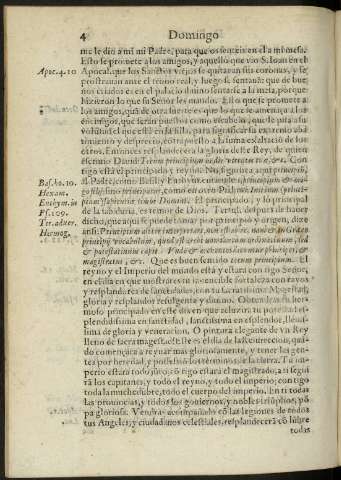 4 Domingo
me le dio a mi mi Padre, para que os senteis en ella a mi mesa.
Esto se promete a los amigos, y aquello que vio S. Ioan en el
Apoc. 4. 10
Apocal. que los Sanctos viejos se quitaran sus coronas, y se
prostrauan ante el trono real, y luego se sentauan: que de bue
nos criados es en el palacio diuino sentarse a la mesa, porque
hizieron lo que su Señor les mando. Esto que se promete a
los amigos, que de otra suerte es lo que se amenaza a los
enemigos, que seran puestos como escabelo, que se pisa a su
voluntad el que está en la silla, para significar su extremo aba
timiento y desprecio, compuesto a la suma exaltacion de los
otros. Entonces resplandecera la gloria deste Rey, de quien
escriuio Dauid: Tecum principium in die virtutis tuæ, &c. Con
tigo está el principado y reyno. No significa aqui principio,
Bas. ho. 10.
Hexam.
Enthym. in
Ps. 109.
Ter. aduer.
Hermog.
al Padre,
como en otro Psal. Initium (princi-
pium) sapientiæ timor Domini. El principado, y lo principal
de la sabiduria, es temor de Dios. Tertul. despues de hauer
dicho, que aqui se puede tomar por principio y origen, dize
ansi: Principium aliter interpretari, non est absurdum in Græco
principij vocabulum, quod est archi non tantum ordinatiuum, sed
& potestatiuum capit principatum. Vnde & archontes dicimus principes, &
magistratus, &c. Que es buen sentido tecum principium. El
reyno y el Imperio del mundo está y estara con tigo Señor,
en el dia en que mostrares tu inuencible fortaleza con rayos
y resplandores de sanctidades, con tu sacratissima Magestad,
gloria y resplandor refulgente y diuino.
moso principado en este
splendidissima en sanctidad, sanctissima en esplendor, llenis-
sima de gloria y veneracion. O pintura elegante de vn Rey
lleno de sacra magestad. Este es el dia de la resurreccion, quan
do començara a reynar mas gloriosamente, y tener las gen-
tes por heredad, y possession los terminos de la tierra. Tu im-
perio estara todo junto, contigo estara el magistrado, a ti segui
rá los capitanes, y todo el reyno, y todo el imperio; con tigo
toda la muchedumbre, todo el cuerpo del imperio. En ti todas
las prouincias, y todos los gouiernos, y nobles triumphos, po
pa gloriosa. Vendras acompañado cõ las legiones de todos
tus Angeles, y ciudadanos celestiales, resplandecerá cõ lũbre
todas